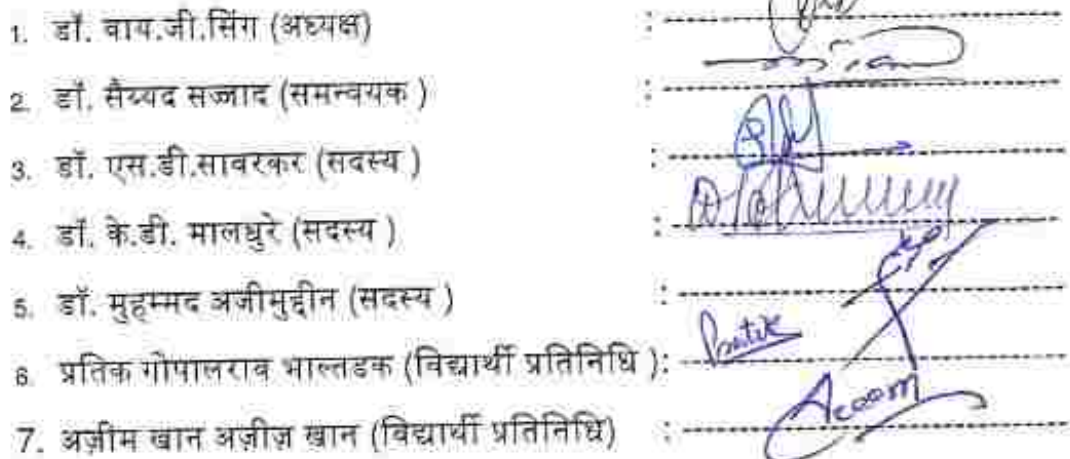 1. डॉ. वाय.जी.सिंग (अध्यक्ष) :
2. डॉ. सैय्यद सज्जाद (समन्वयक ) :
3. डॉ. एस.डी.सावरकर (सदस्य ) :
4. डॉ. के.डी. मालधुरे (सदस्य ) :
5. डॉ. मुहम्मद अजीमुद्दीन (सदस्य ) :
6. प्रतिक गोपालराव भाल्तडक (विद्यार्थी प्रतिनिधि ):
7. अज़ीम खान अज़ीज़ खान (विद्यार्थी प्रतिनिधि) :